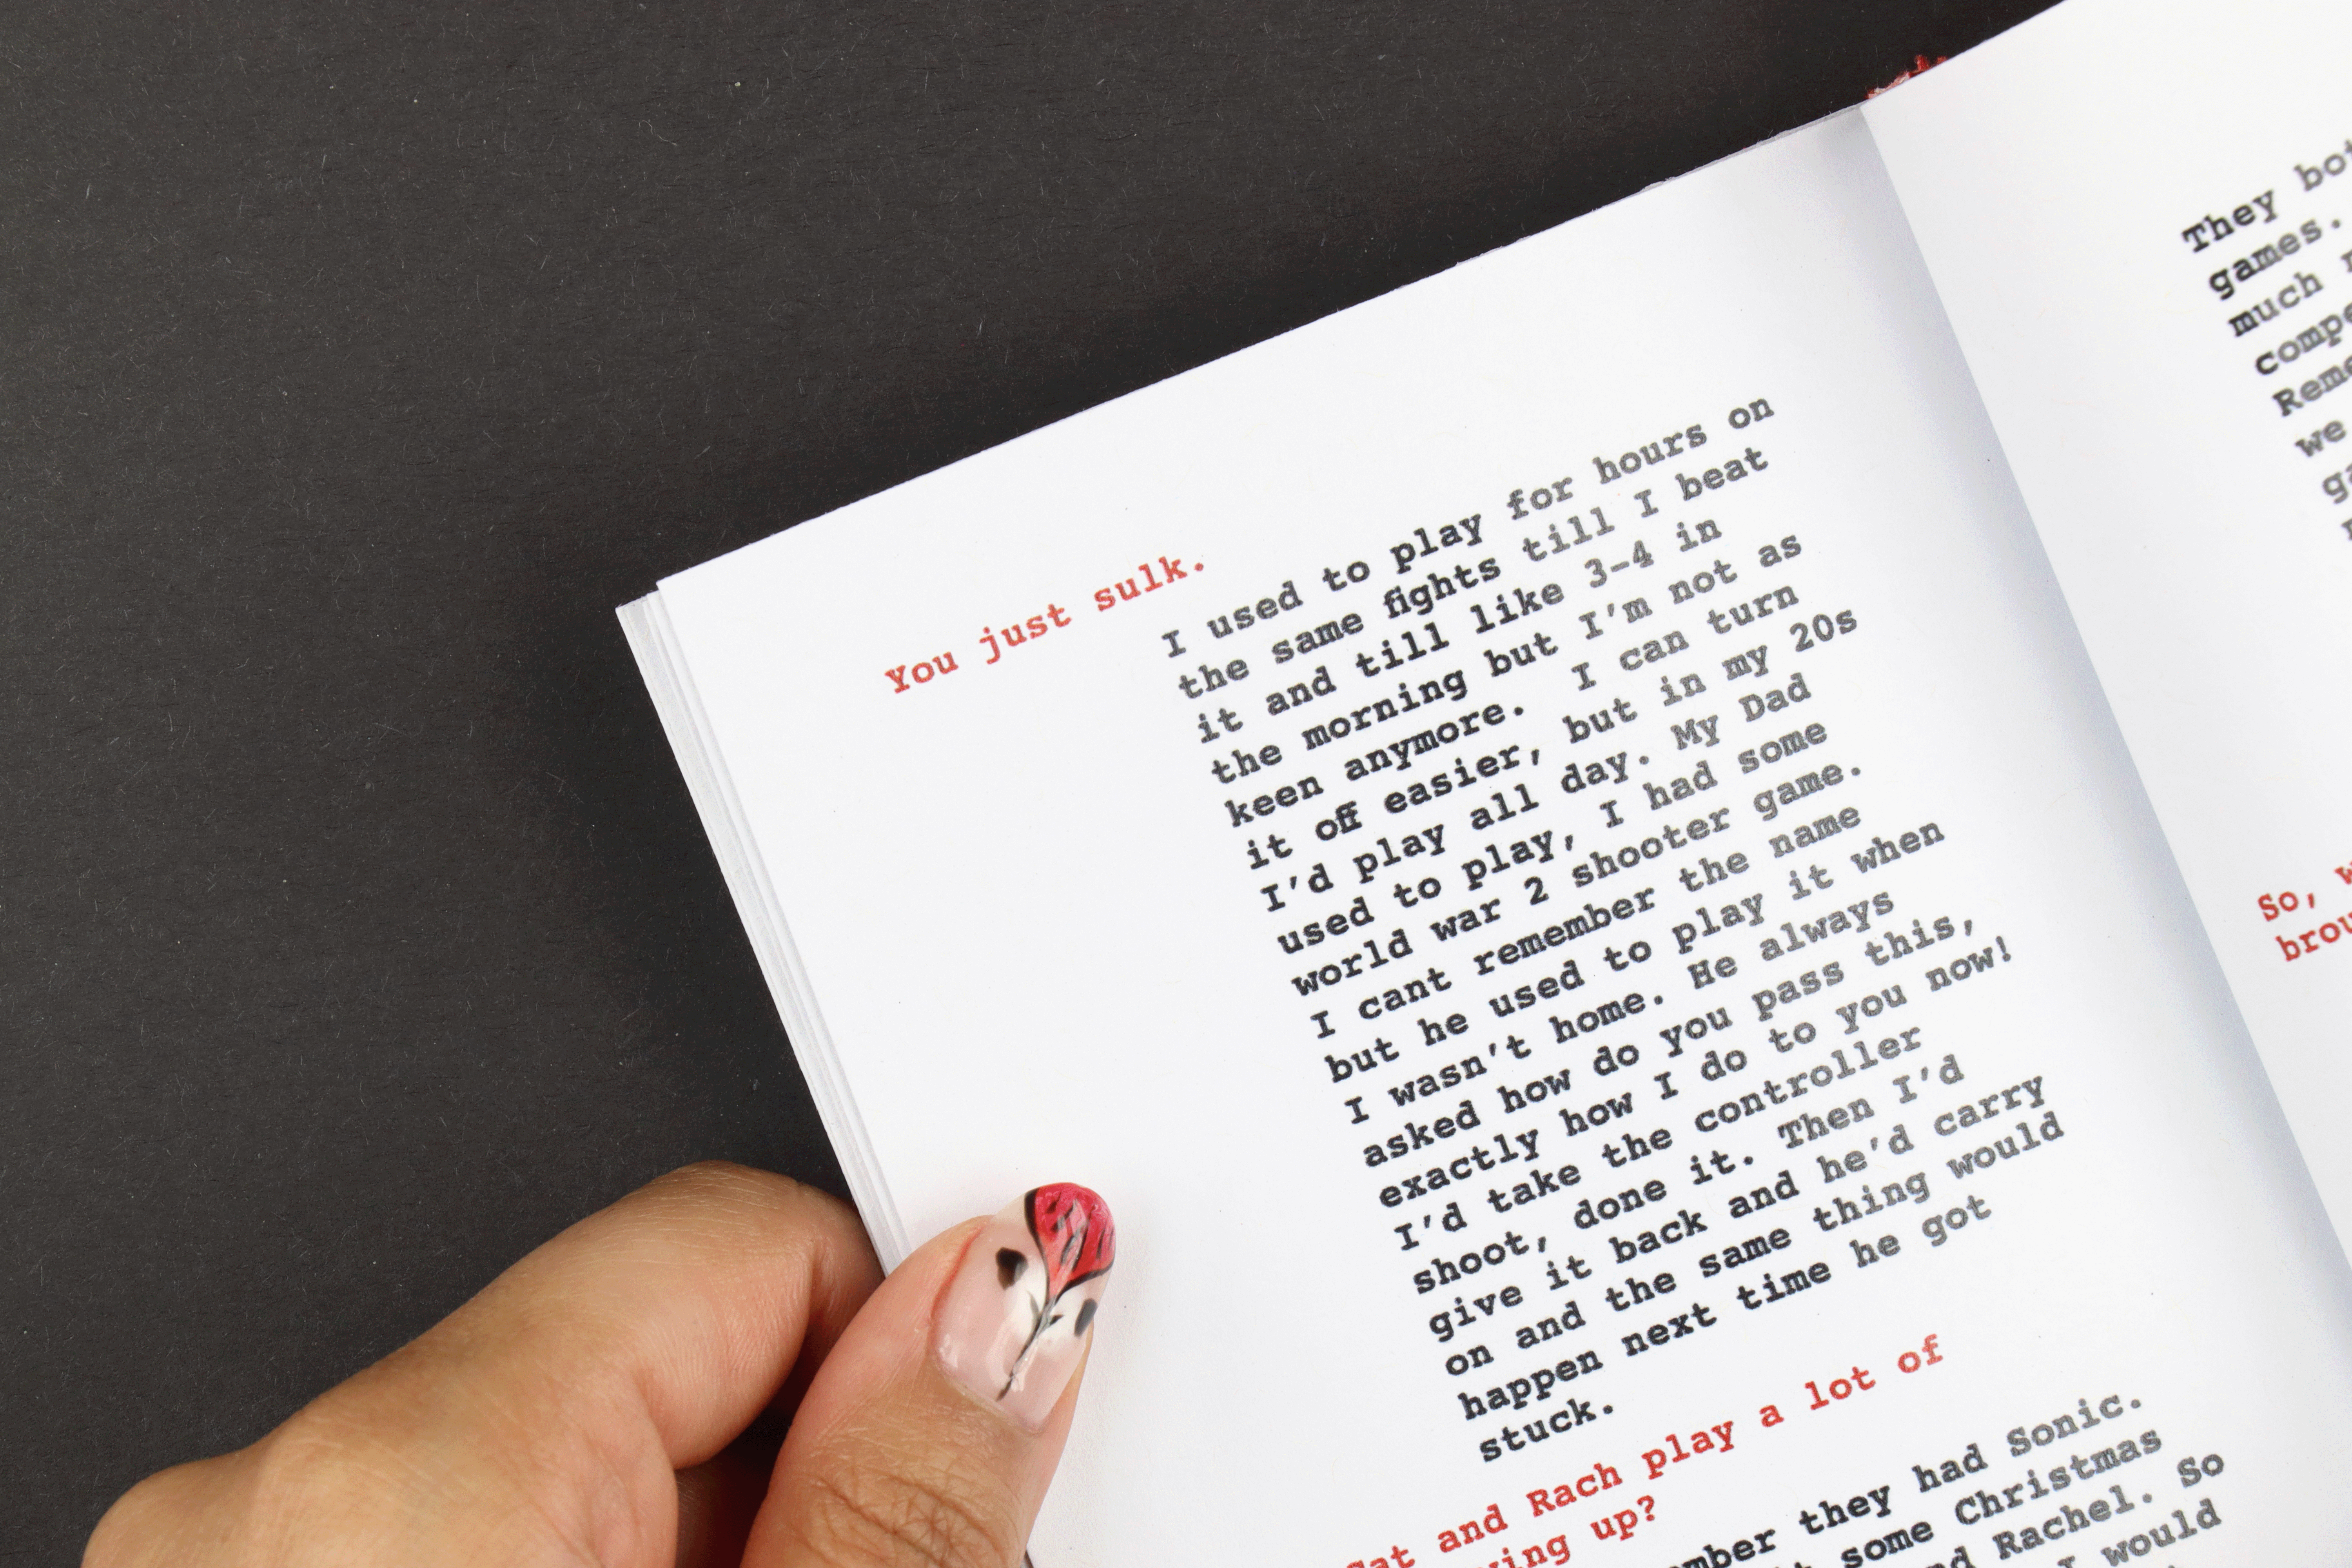 You just sulk.
I used to play for hours on
the same fights till I beat
it and till like 3-4 in
the morning but I'm not as
keen anymore. I can turn
it off easier, but in my 20s
I'd play all day. My Dad
used to play, I had some
world war 2 shooter game.
I cant remember the name
but he used to play it when
I wasn't home. He always
asked how do you pass this,
exactly how I do to you now!
I'd take the controller
shoot, done it. Then I'd
give it back and he'd carry
on and the same thing would
happen next time he got
stuck.
and Rach play a lot of
up?
they had Sonic.
some Christmas
Rachel. So
I would
They
games.
much
we
So,